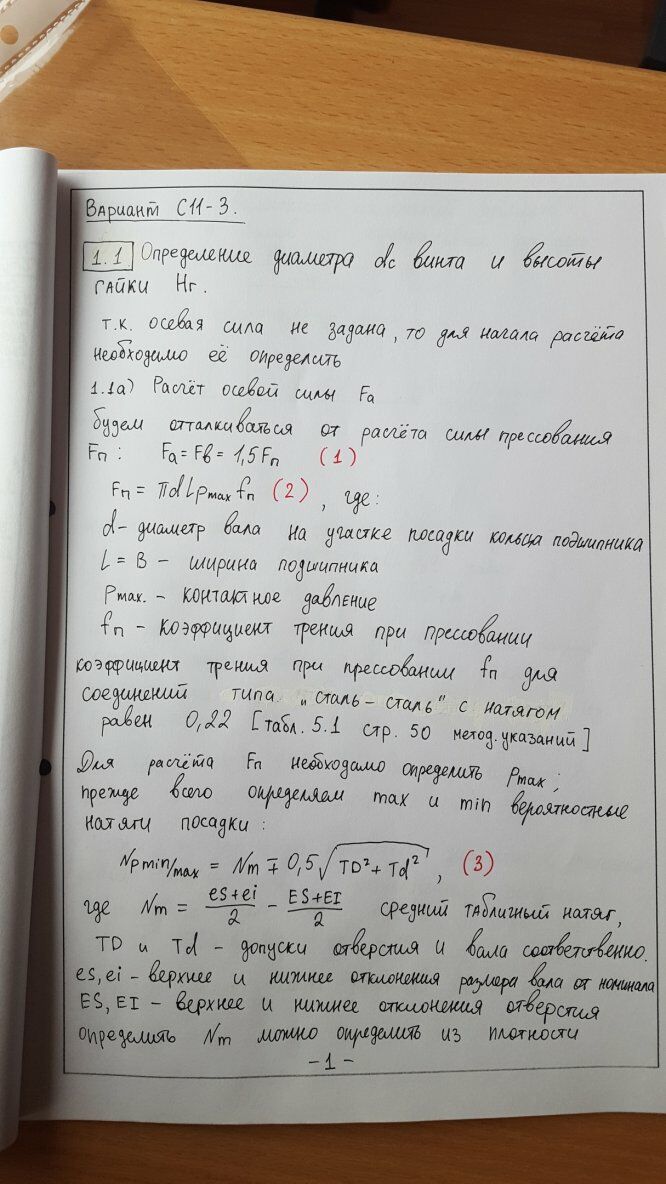 Вариант С11-3.
1.1 Определение диаметра dc винта и высоты
гайки Hг.
т.к. осевая сила не задана, то для начала расчёта
необходимо её определить
1.1а) Расчёт осевой силы Fa
будем отталкиваться от расчёта силы прессования
Fп : Fa = Fв = 1,5Fп (1)
Fп = πdLpmax fп (2) , где:
d- диаметр вала на участке посадки кольца подшипника
L = B - ширина подшипника
pmax. - контактное давление
fп - коэффициент трения при прессовании
коэффициент трения при прессовании fп для
соединений типа "сталь-сталь" с натягом
равен 0,22 [табл. 5.1 стр. 50 метод. указаний]
Для расчёта Fп необходимо определить pmax;
прежде всего определяем max и min вероятностные
натяги посадки :
Npmin/max = Nm ∓ 0,5√(TD² + Td²) , (3)
где Nm = (es+ei)/2 - (ES+EI)/2 средний табличный натяг,
TD и Td - допуски отверстия и вала соответственно.
es, ei - верхнее и нижнее отклонения размера вала от номинала
ES, EI - верхнее и нижнее отклонения отверстия
определить Nm можно определить из плотности
- 1 -